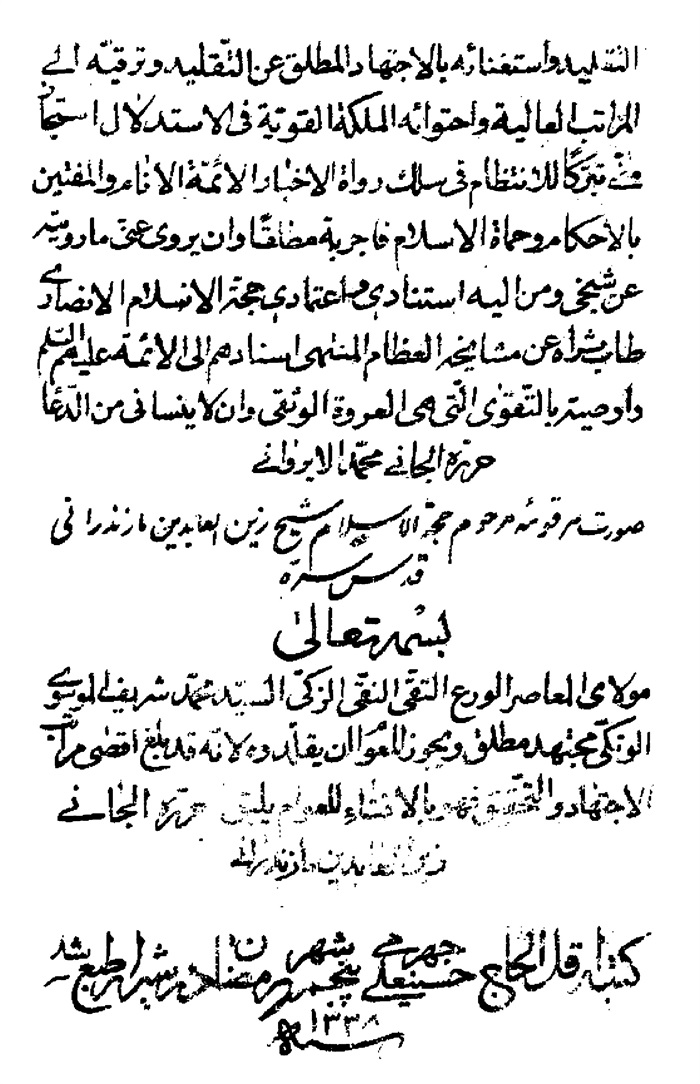 التقليد واستغنائه بالاجتهاد المطلق عن التقليد وترقيه الى
المراتب العالية واحتوائه الملكة القوية فى الاستدلال استجاز
منى تبركا للانتظام فى سلك رواة الاخبار الائمة الانام والمفتين
بالاحكام وحماة الاسلام فاجزته مطلقا وان يروى عنى مارويته
عن شيخى ومن اليه استنادى و اعتمادى حجة الاسلام الانصارى
طاب ثراه عن مشايخه العظام المنتهى اسنادهم الى الائمة عليهم السلم
واوصيته بالتقوى التى هى العروة الوثقى وان لا ينسانى من الدعا
حرره الجانى محمد الايروانى
صورت مرقومه مرحوم حجة الاسلام شيخ زين العابدين مازندرانى
قدس سره
بسمه تعالى
مولاى المعاصر الورع التقى النقى الزكى السيد محمد شريف الموسوى
التونكى مجتهد مطلق ويجوز للعوام ان يقلدوه لانه قد بلغ اقصى مراتب
الاجتهاد والتحقيق فهو بالافتاء للعوام يليق حرره الجانى
زين العابدين مازندرانى
كتبه اقل الحاج حسينعلى جهرمى پنجم شهر رمضان در شيراز طبع شد
سنه ١٣٣٨